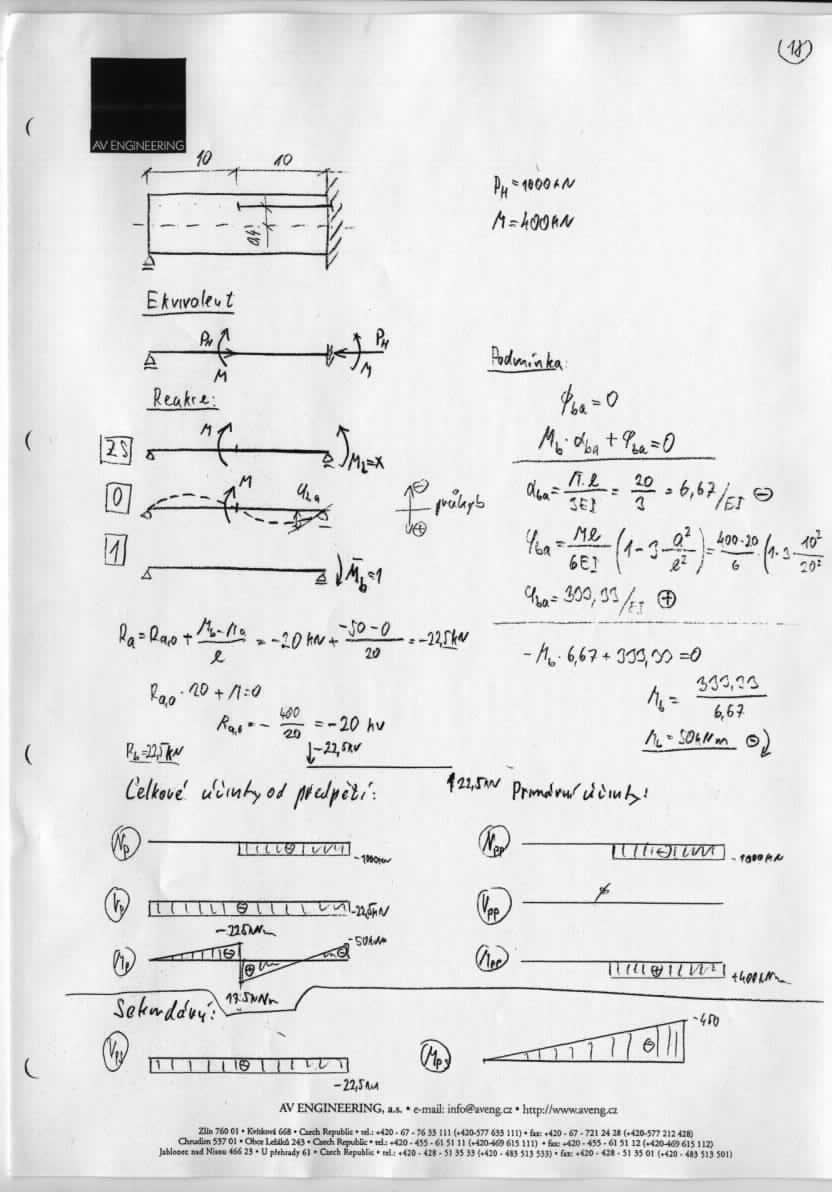 (18)
AV ENGINEERING
10 10
P_H = 1000kN
M = 400kN
0,4
Ekvivalent
P_H P_H
M M
Podmínka:
ϕ_ba = 0
Reakce:
M_b · α_ba + φ_ba = 0
ZS M M_b = x
α_ba = M.l/3EI = 20/3 = 6,67/EI ⊖
0 M φ_ba ⊖ průhyb ⊕
φ_ba = Ml/6EI (1 - 3 a²/l²) = 400·20/6 · (1 - 3 10²/20²
1 M̄_b = 1
φ_ba = 333,33/EI ⊕
R_a = R_a,0 + M_b - M_a/l = -20 kN + -50-0/20 = -22,5kN
- M_b · 6,67 + 333,33 = 0
R_a,0 · 20 + M = 0
M_b = 333,33/6,67
R_a,0 = - 400/20 = -20 kN
M_b = 50kNm ⊖
R_b = 22,5kN -22,5kN
22,5kN
Celkové účinky od předpětí: Primární účinky:
N_p -1000kN N_pp -1000kN
V_p -22,5kN V_pp
-225kNm -50kNm
M_p M_pp +400kNm
Sekundární:
-450
V_ps M_ps
-22,5kN
AV ENGINEERING, a.s. • e-mail: info@aveng.cz • http://www.aveng.cz
Zlín 760 01 • Kvítková 668 • Czech Republic • tel.: +420 - 67 - 76 33 111 (+420-577 633 111) • fax: +420 - 67 - 721 24 28 (+420-577 212 428)
Chrudim 537 01 • Obce Ležáků 243 • Czech Republic • tel.: +420 - 455 - 61 51 11 (+420-469 615 111) • fax: +420 - 455 - 61 51 12 (+420-469 615 112)
Jablonec nad Nisou 466 23 • U přehrady 61 • Czech Republic • tel.: +420 - 428 - 51 35 33 (+420 - 483 513 533) • fax: +420 - 428 - 51 35 01 (+420 - 483 513 501)